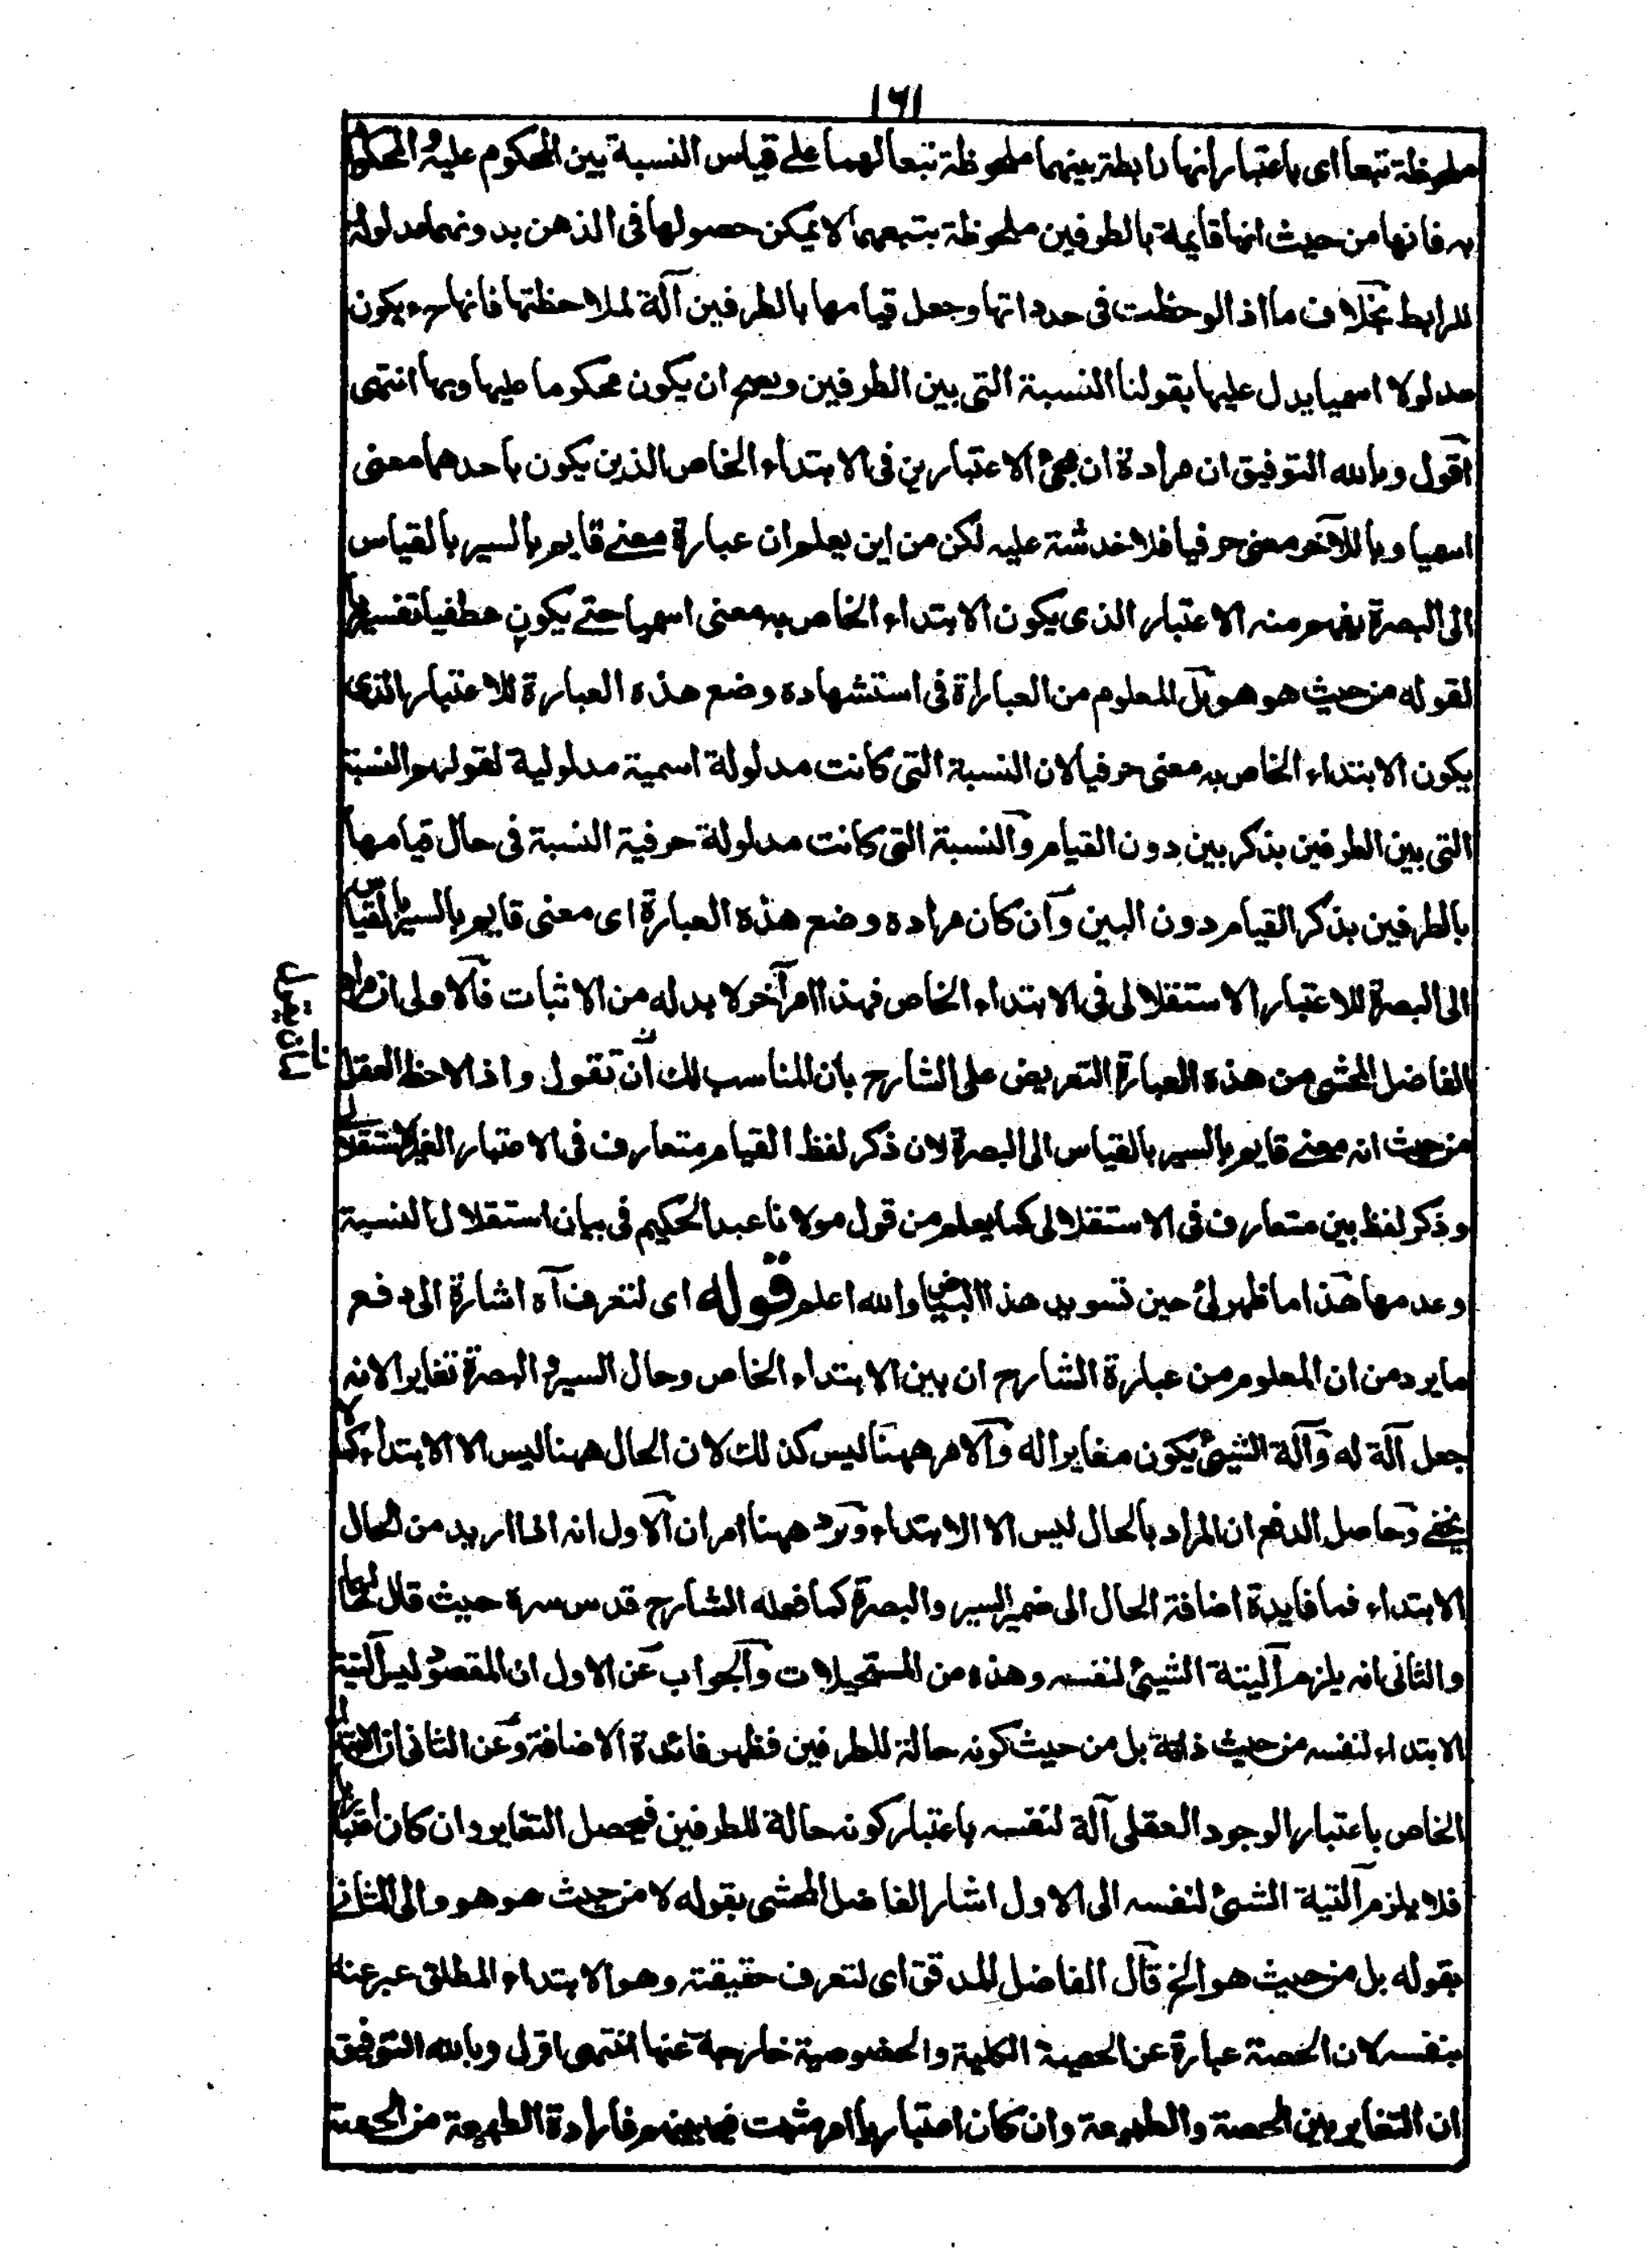 ١٦١
ملحوظة تبعا اى باعتبار انها رابطة بينهما ملحوظة تبعا لهما على قياس النسبة بين المحكوم عليه والمحكوم
به فانها من حيث انها قايمة بالطرفين ملحوظة بتبعهما لا يمكن حصولها فى الذهن بدونهما مدلولة
للرابط بخلاف ما اذا لوحظت فى حد ذاتها وجعل قيامها بالطرفين آلة لملاحظتها فانها ح يكون
مدلولا اسميا يدل عليها بقولنا النسبة التى بين الطرفين ويصح ان يكون محكوما عليها وبها انتهى
اقول وبالله التوفيق ان مراده ان مجئ الاعتبارين فى الابتداء الخاص الذين يكون باحدهما معنى
اسميا وبالآخر معنى حرفيا فلا خدشة عليه لكن من اين يعلم ان عبارة معنے قايم بالسير بالقياس
الى البصرة يفهم منه الاعتبار الذى يكون الابتداء الخاص به معنى اسميا حتے يكون عطفيا تفسيريا
لقوله من حيث هو هو بل المعلوم من العبارة فى استشهاده وضع هذه العبارة للاعتبار الذى
يكون الابتداء الخاص به معنى حرفيا لان النسبة التى كانت مدلولة اسمية مدلولية لقولهم النسبة
التى بين الطرفين بذكر بين دون القيام والنسبة التى كانت مدلولة حرفية النسبة فى حال قيامها
بالطرفين بذكر القيام دون البين وان كان مراده وضع هذه العبارة اى معنى قايم بالسير بالقياس
الى البصرة للاعتبار الاستقلالى فى الابتداء الخاص فهذا امر آخر لا بد له من الاثبات فالاولى ان مراد
الفاضل المحشى من هذه العبارة التعريض على الشارح بان المناسب لك ان تقول واذا لاحظ العقل
من حيث انه معنے قايم بالسير بالقياس الى البصرة لان ذكر لفظ القيام متعارف فى الاعتبار الغير الاستقلالى
وذكر لفظ بين متعارف فى الاستقلالى كما يعلم من قول مولانا عبد الحكيم فى بيان استقلال النسبة
وعدمها هذا ما ظهر لى حين تسويد هذا البياض والله اعلم قوله اى لتعرف آه اشارة الى دفع
ما يرد من ان المعلوم من عبارة الشارح ان بين الابتداء الخاص وحال السير والبصرة تغاير لانه
جعل آلة له وآلة الشيئ يكون مغايرا له والامر ههنا ليس كذلك لان الحال ههنا ليس الا الابتداء كما لا
يخفے وحاصل الدفع ان المراد بالحال ليس الا الابتداء ويرد ههنا امران الاول انه اذا اريد من الحال
الابتداء فما فايدة اضافة الحال الى ضمير السير والبصرة كما فعله الشارح قدس سره حيث قال لحالهما
والثانى انه يلزم آليتة الشيئ لنفسه وهذه من المستحيلات والجواب عن الاول ان المقصود ليس آلتية
الابتداء لنفسه من حيث ذاته بل من حيث كونه حالة للطرفين فظهر فائدة الاضافة وعن الثانى ان الابتداء
الخاص باعتبار الوجود العقلى آلة لنفسه باعتبار كونه حالة للطرفين فيحصل التغاير وان كان اعتباريا
فلا يلزم آلتية الشئ لنفسه الى الاول اشار الفاضل المحشى بقوله لا من حيث هو هو والى الثانى
بقوله بل من حيث هو الخ قال الفاضل المدقق اى لتعرف حقيقته وهو الابتداء المطلق عبر عنه
بنفسه لان الحصة عبارة عن الحصية الكلية والخصوصية خارجة عنها انتهى اقول وبالله التوفيق
ان التغاير بين الحصة والطبيعة وان كان اعتباريا امر مثبت فيما بينهم فارادة الطبيعة من الحصة